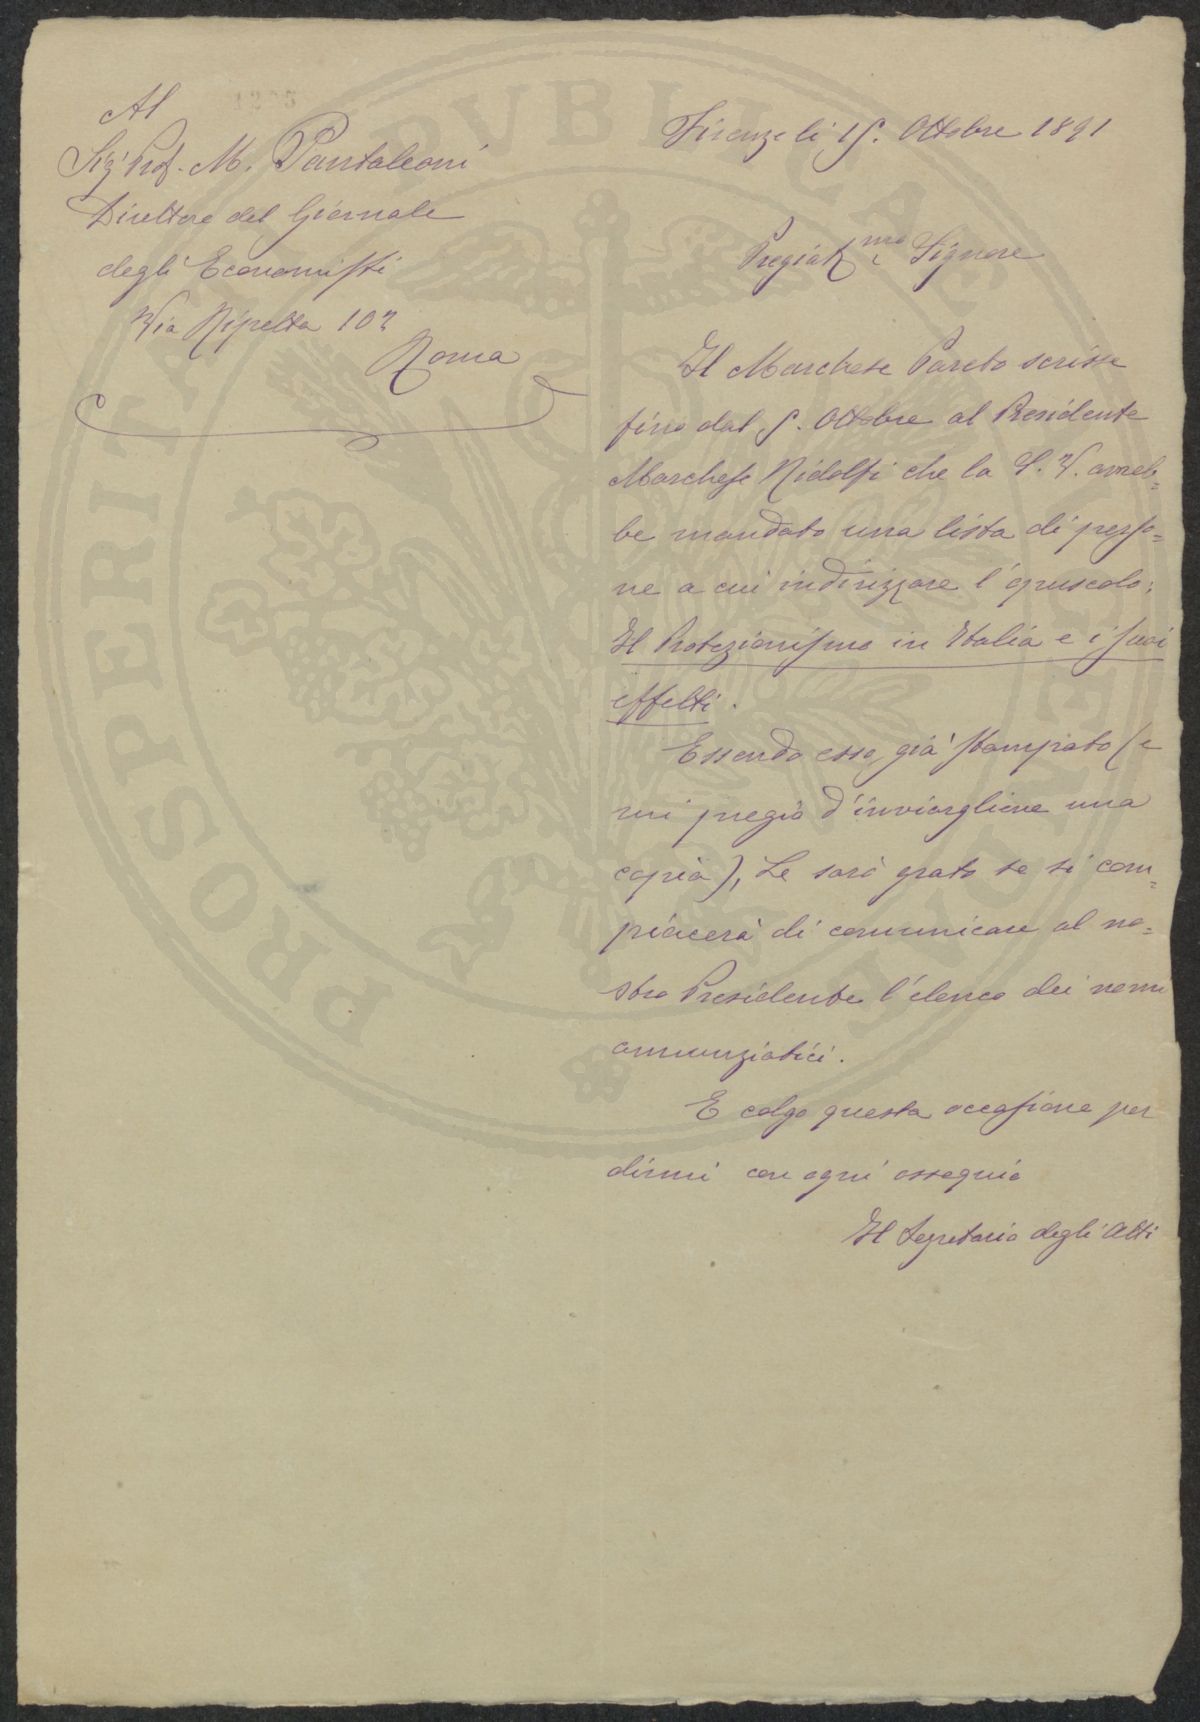 Al
Sigr Prof. M. Pantaleoni
Direttore del Giornale
degli Economisti
Via Ripetta 102
Roma
Firenze li 15. Ottobre 1891
Pregiatmo Signore
Il Marchese Pareto scrisse
fino dal 5. Ottobre al Presidente
Marchese Ridolfi che la S. V. avreb=
be mandato una lista di perso=
ne a cui indirizzare l'opuscolo:
Il Protezionismo in Italia e i suoi
effetti.
Essendo esso già stampato (e
mi pregio d'inviargliene una
copia), Le sarò grato se si com=
piacerà di comunicare al no=
stro Presidente l'elenco dei nomi
annunziatici.
E colgo questa occasione per
dirmi con ogni ossequio
Il Segretario degli Atti
PROSPERITAS PVBLICAE